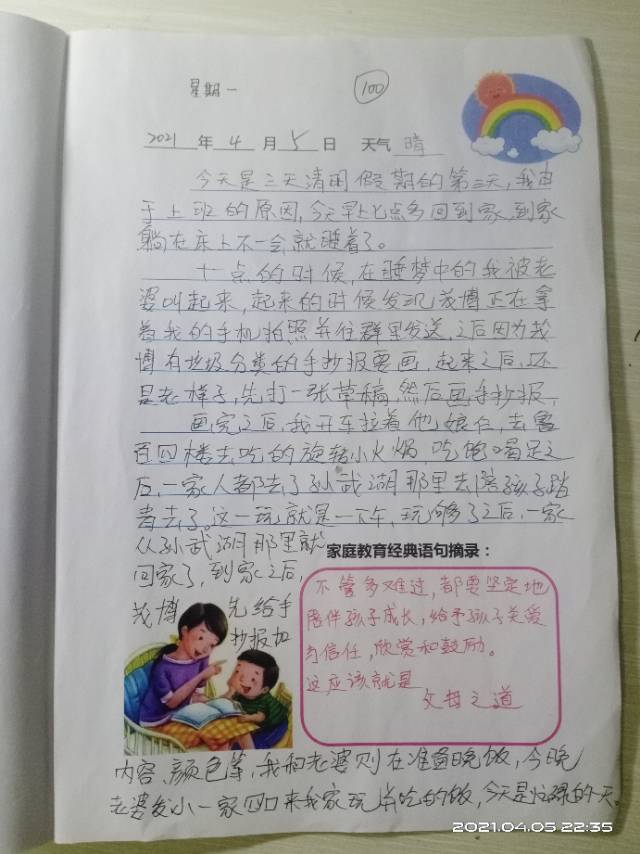 星期一
100
2021 年 4 月 5 日 天气 晴
今天是三天清明假期的第三天,我由
于上班的原因,今天早上七点多回到家,到家
躺在床上不一会就睡着了。
十点的时候,在睡梦中的我被老
婆叫起来,起来的时候发现茂博正在拿
着我的手机拍照并往群里发送,之后因为茂
博有垃圾分类的手抄报要画,起来之后,还
是老样子,先打一张草稿,然后画手抄报,
画完之后,我开车拉着他娘仨,去鲁
百四楼去吃的旋转小火锅,吃饱喝足之
后,一家人都去了孙武湖那里去陪孩子踏
青去了。这一玩就是一下午,玩够了之后,一家
从孙武湖那里就
回家了,到家之后,
茂博 先给手
抄报加
家庭教育经典语句摘录:
不管多难过,都要坚定地
陪伴孩子成长,给予孩子关爱
与信任,欣赏和鼓励。
这应该就是
父母之道
内容、颜色等,我和老婆则在准备晚饭,今晚
老婆发小一家四口来我家玩肖吃的饭,今天是忙碌的一天。
2021.04.05 22:35